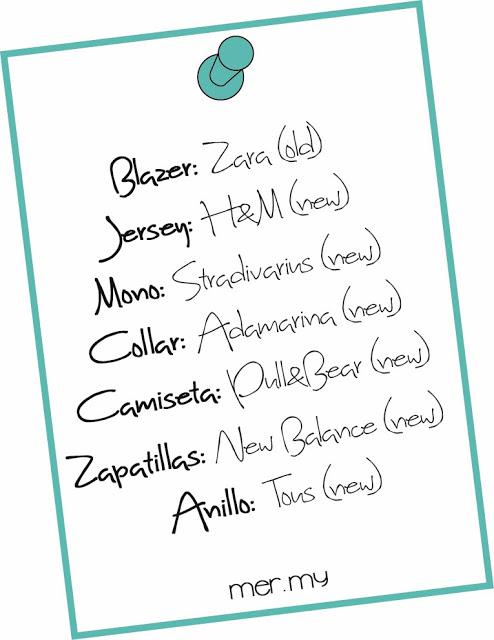 Blazer: Zara (old)
Jersey: H&M (new)
Mono: Stradivarius (new)
Collar: Adamarina (new)
Camiseta: Pull&Bear (new)
Zapatillas: New Balance (new)
Anillo: Tous (new)
mer.my